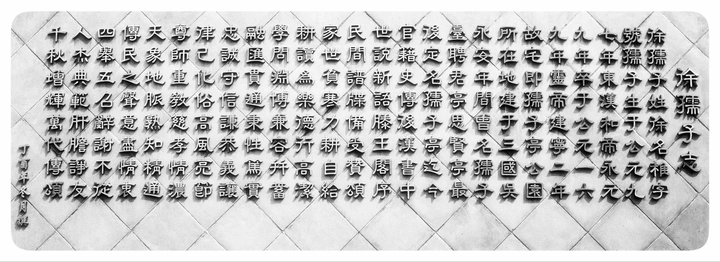 徐孺子志
徐孺子姓徐名稚字
號孺子生于公元九
七年東漢和帝永元
九年卒于公元一六
九年靈帝建寧二年
故宅即孺子亭公園
所在地建于三國吴
永安年間曹名孺子
臺聘君亭思賢亭最
後定名孺子亭迄今
官籍史傳後漢書中
世說新語滕王閣序
民間譜牒備受贊頌
家世貧寒力耕自給
耕讀爲樂德行高潔
學問淵博兼容并蓄
融匯貫通秉性篤實
忠誠守信謙恭義讓
律己化俗高風亮節
尊師重教慈孝情濃
天象地脈熟知精通
傳民之聲意盡情衷
四舉五召辭謝不從
人杰典範肝膽謙友
千秋增輝萬代傳頌
丁酉年月